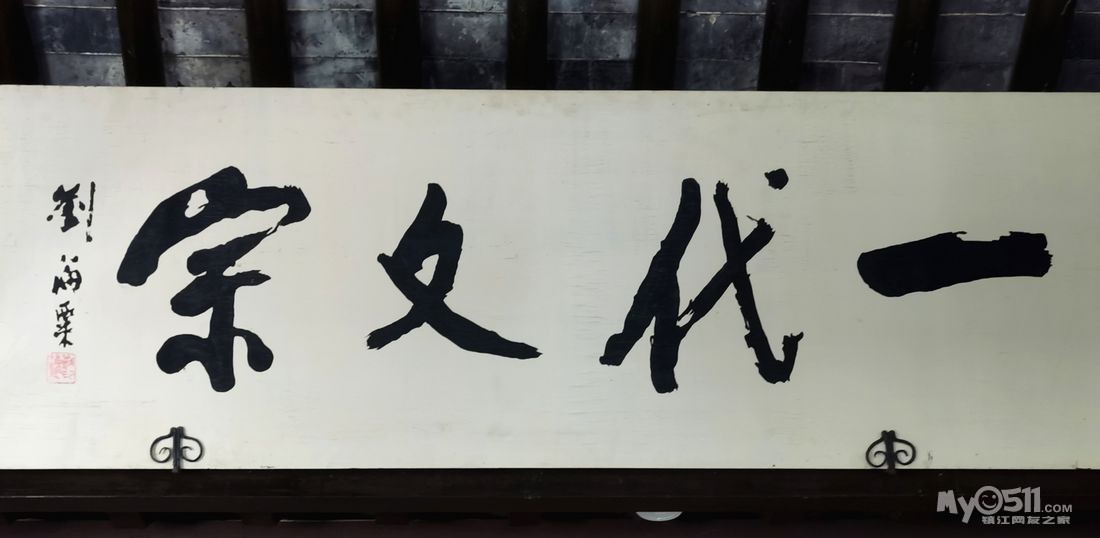 一代文宗
劉海粟
My0511.COM
镇江网友之家